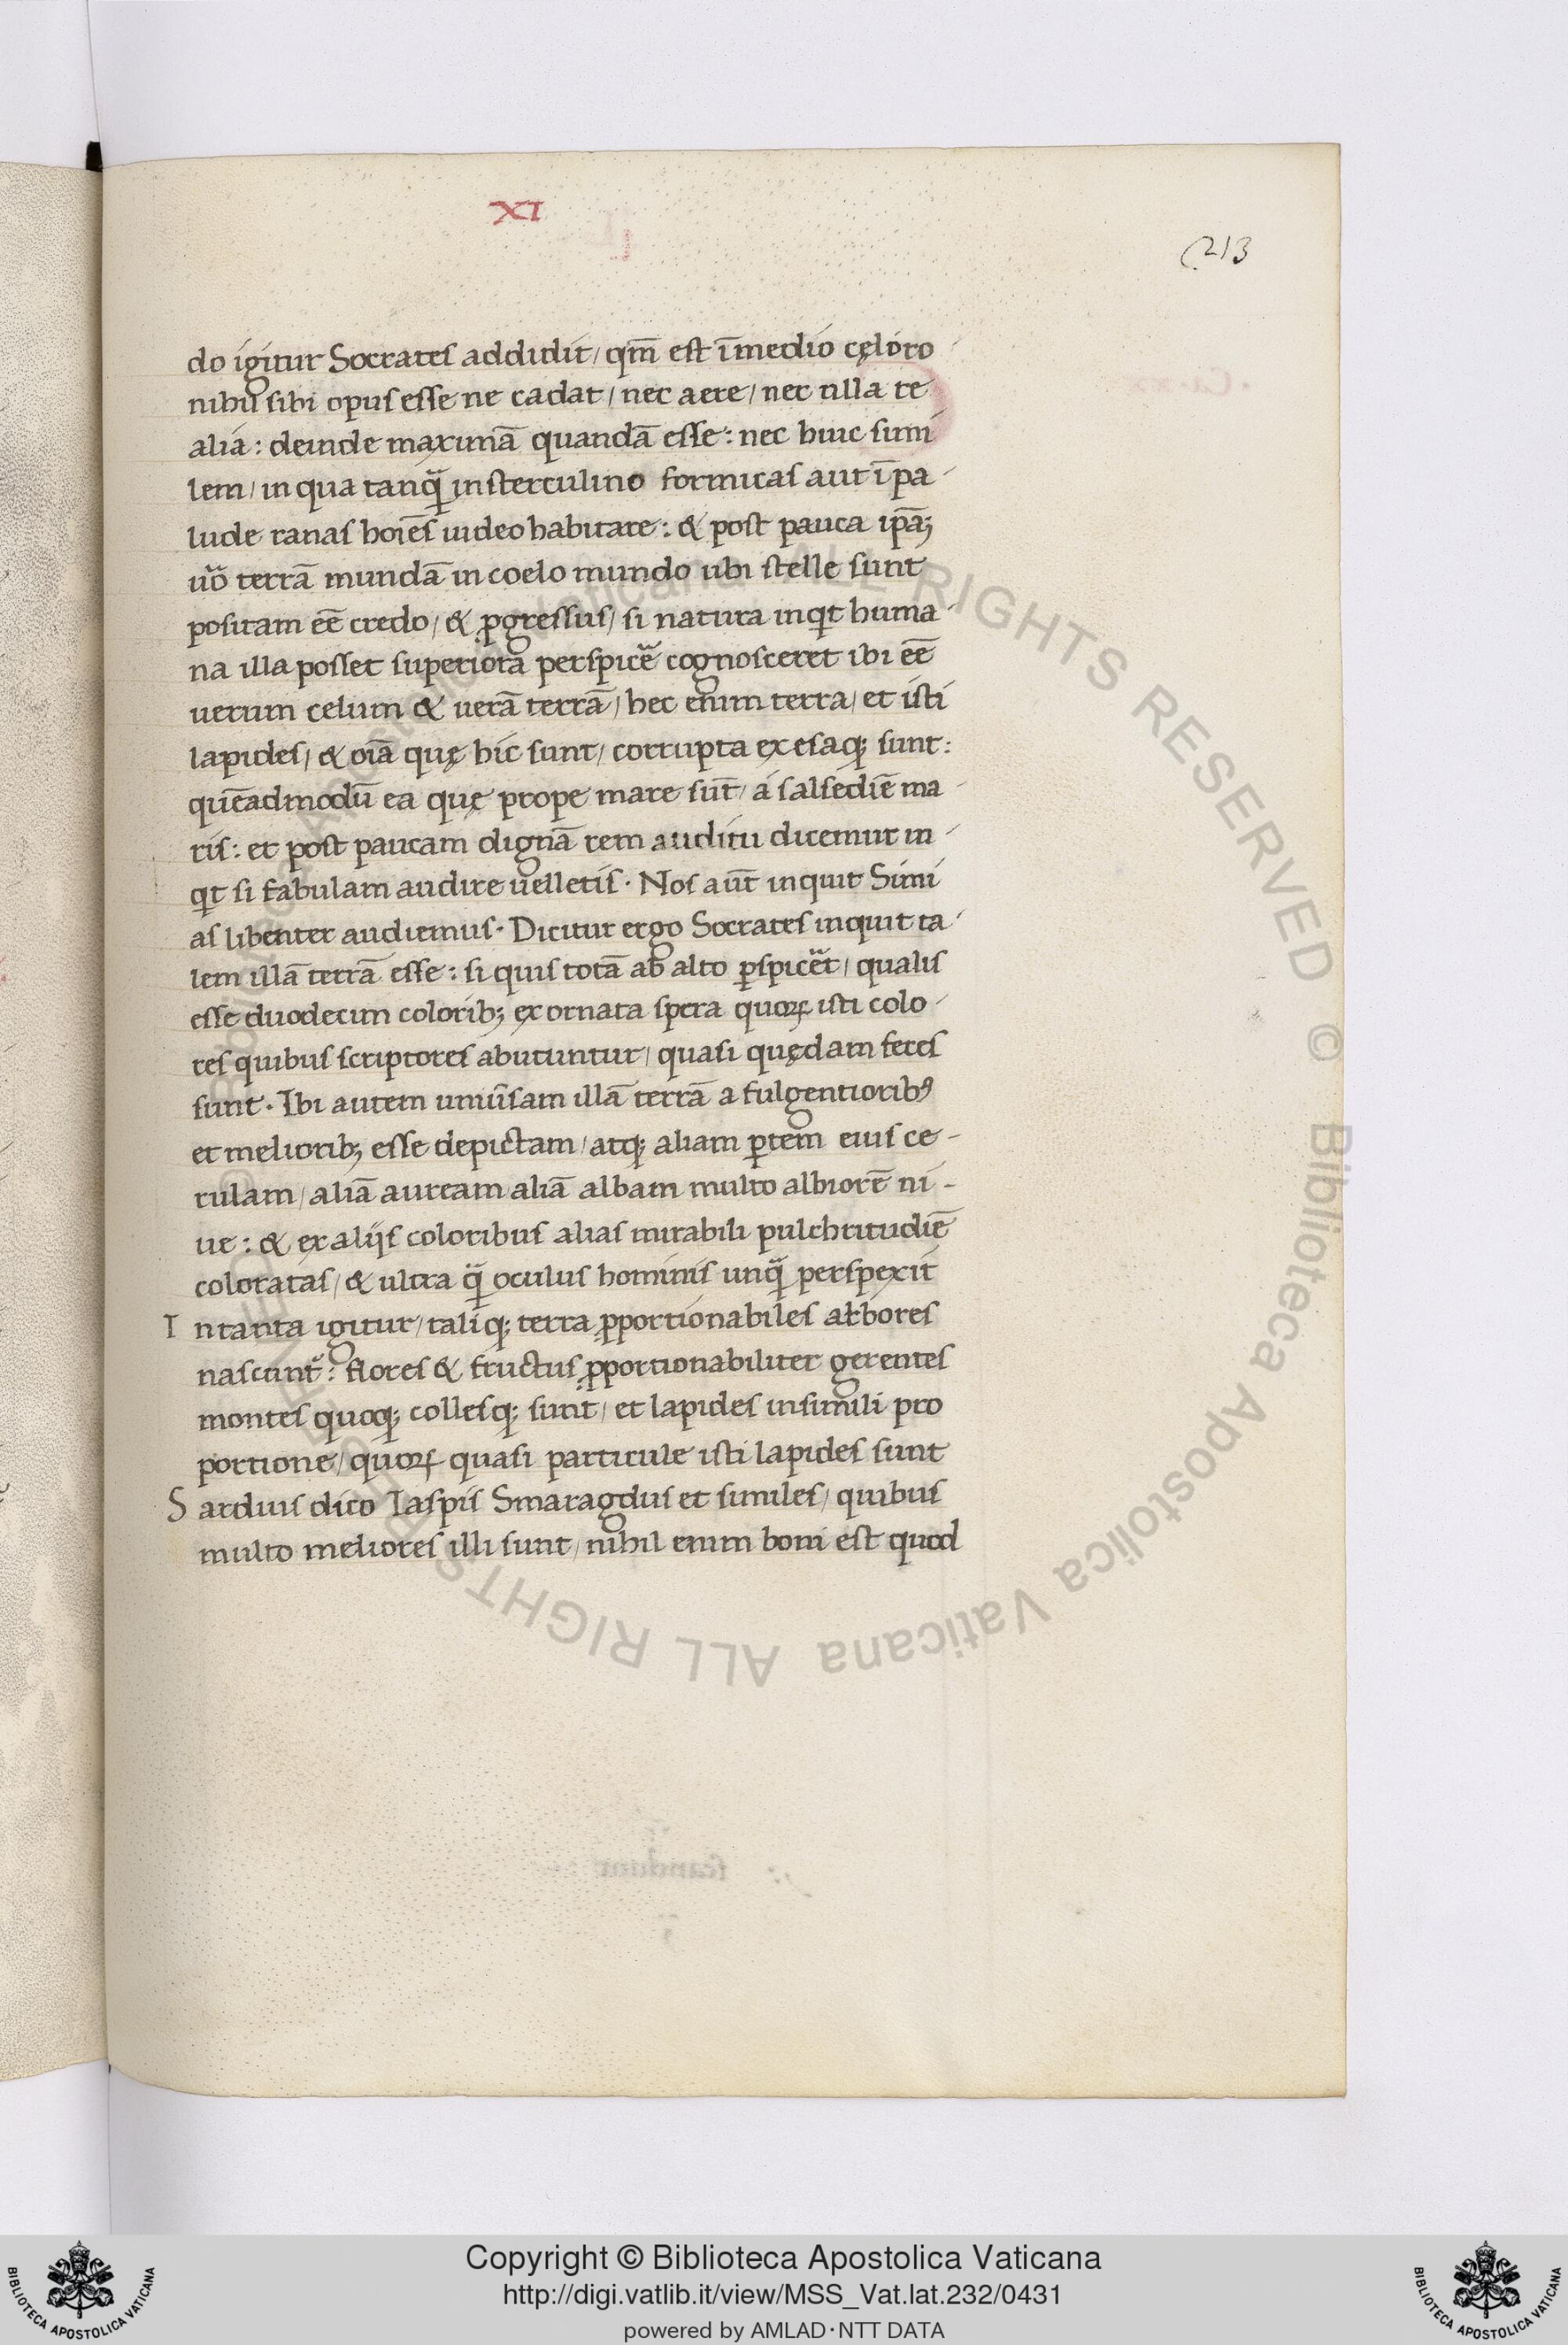 XI
213
do igitur Socrates addidit/ qm̄ est ī medio cęlo ro
nihil sibi opus esse ne cadat/ nec aere/ nec ulla re
alia: deinde maximā quandā esse: nec huic simi
lem/ in qua tanq̃ in sterculino formicas aut ī pa-
lude ranas hoīes uideo habitare: & post pauca ipā;
uō terrā mundā in coelo mundo ubi stelle sunt
positam eē credo/ & ꝓgressus/ si natura inqͥt huma-
na illa posset superiora perspicẽ cognosceret ibi eē
uerum celum & uerā terrā/ hec enim terra/ et isti
lapides/ & oīa quę hic sunt/ corrupta exesaq; sunt:
quēadmodū ea quę prope mare sūt/ a salsediē ma-
ris: et post paucam dignā rem auditu dicemur in-
qͥt si fabulam audire uelletis. Nos aūt inquit Simi
as libenter audiemus. Dicitur ergo Socrates inquit ta-
lem illā terrā esse: si quis totā ab alto ꝑspicẽt/ qualis
esse duodecim colorib; exornata spera quoꝝ isti colo-
res quibus scriptores abutuntur/ quasi quędam feces
sunt. Ibi autem uniūsam illā terrā a fulgentioribꝰ
et meliorib; esse depictam/ atq; aliam ꝑtem eius ce-
rulam/ aliā auream aliā albam multo albiorē ni-
ue: & ex alijs coloribus alias mirabili pulchritudiē
coloratas/ & ultra q̃ oculus hominis unq̃ perspexit
I ntanta igitur/ taliq; terra ꝓportionabiles arbores
nascunt᷑: flores & fructus ꝓportionabiliter gerentes
montes quoq; collesq; sunt/ et lapides in simili pro
portione/ quoꝝ quasi particule isti lapides sunt
S ardius dico Iaspis Smaragdus et similes/ quibus
multo meliores illi sunt/ nihil enim boni est quod
© Biblioteca Apostolica Vaticana ALL RIGHTS RESERVED
© Biblioteca Apostolica Vaticana ALL RIGHTS RESERVED
Copyright © Biblioteca Apostolica Vaticana
http://digi.vatlib.it/view/MSS_Vat.lat.232/0431
powered by AMLAD·NTT DATA
BIBLIOTECA APOSTOLICA VATICANA
BIBLIOTECA APOSTOLICA VATICANA